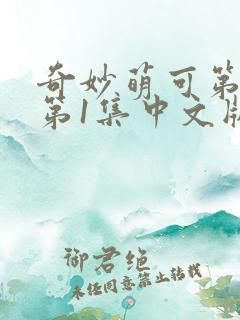 奇妙萌可第
第1集中文版
御君绝
未经同意禁止转载